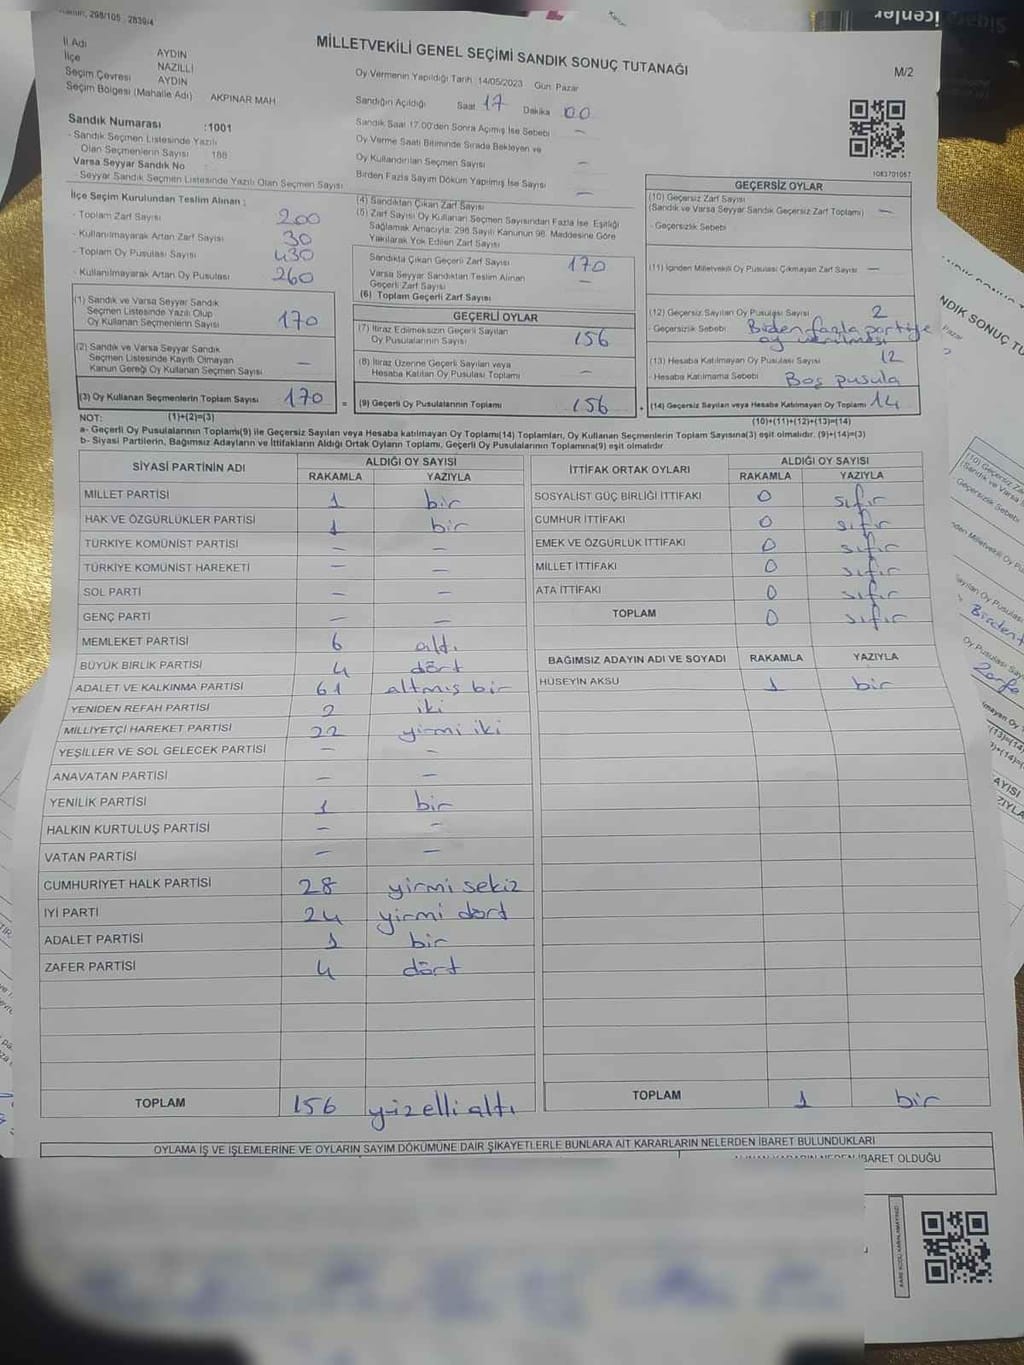 298/105 2839/4
MİLLETVEKİLİ GENEL SEÇİMİ SANDIK SONUÇ TUTANAĞI
M/2
İl Adı AYDIN
İlçe NAZİLLİ
Seçim Çevresi AYDIN
Seçim Bölgesi (Mahalle Adı) AKPINAR MAH.
Oy Vermenin Yapıldığı Tarih :14/05/2023 Gün: Pazar
Sandığın Açıldığı Saat 17 Dakika 00
Sandık Saat 17.00'den Sonra Açılmış İse Sebebi —
Oy Verme Saati Bitiminde Sırada Bekleyen ve
Oy Kullandırılan Seçmen Sayısı —
Birden Fazla Sayım Döküm Yapılmış İse Sayısı —
1083701057
Sandık Numarası :1001
- Sandık Seçmen Listesinde Yazılı
Olan Seçmenlerin Sayısı : 188
Varsa Seyyar Sandık No
- Seyyar Sandık Seçmen Listesinde Yazılı Olan Seçmen Sayısı
İlçe Seçim Kurulundan Teslim Alınan ;
- Toplam Zarf Sayısı 200
- Kullanılmayarak Artan Zarf Sayısı 30
- Toplam Oy Pusulası Sayısı 430
- Kullanılmayarak Artan Oy Pusulası 260
(1) Sandık ve Varsa Seyyar Sandık
Seçmen Listesinde Yazılı Olup
Oy Kullanan Seçmenlerin Sayısı 170
(2) Sandık ve Varsa Seyyar Sandık
Seçmen Listesinde Kayıtlı Olmayan
Kanun Gereği Oy Kullanan Seçmen Sayısı —
(3) Oy Kullanan Seçmenlerin Toplam Sayısı 170 =
(1)+(2)=(3)
(4) Sandıktan Çıkan Zarf Sayısı
(5) Zarf Sayısı Oy Kullanan Seçmen Sayısından Fazla İse, Eşitliği
Sağlamak Amacıyla; 298 Sayılı Kanunun 98. Maddesine Göre
Yakılarak Yok Edilen Zarf Sayısı
Sandıkta Çıkan Geçerli Zarf Sayısı 170
Varsa Seyyar Sandıktan Teslim Alınan
Geçerli Zarf Sayısı —
(6) Toplam Geçerli Zarf Sayısı
GEÇERLİ OYLAR
(7) İtiraz Edilmeksizin Geçerli Sayılan
Oy Pusulalarının Sayısı 156
(8) İtiraz Üzerine Geçerli Sayılan veya
Hesaba Katılan Oy Pusulası Toplamı —
(9) Geçerli Oy Pusulalarının Toplamı 156 +
GEÇERSİZ OYLAR
(10) Geçersiz Zarf Sayısı
(Sandık ve Varsa Seyyar Sandık Geçersiz Zarf Toplamı) —
- Geçersizlik Sebebi
(11) İçinden Milletvekili Oy Pusulası Çıkmayan Zarf Sayısı —
(12) Geçersiz Sayılan Oy Pusulası Sayısı 2
- Geçersizlik Sebebi Birden fazla partiye
oy verilmesi
(13) Hesaba Katılmayan Oy Pusulası Sayısı 12
- Hesaba Katılmama Sebebi Boş pusula
(14) Geçersiz Sayılan veya Hesaba Katılmayan Oy Toplamı 14
(10)+(11)+(12)+(13)=(14)
NOT:
a- Geçerli Oy Pusulalarının Toplamı(9) ile Geçersiz Sayılan veya Hesaba katılmayan Oy Toplamı(14) Toplamları, Oy Kullanan Seçmenlerin Toplam Sayısına(3) eşit olmalıdır. (9)+(14)=(3)
b- Siyasi Partilerin, Bağımsız Adayların ve İttifakların Aldığı Ortak Oyların Toplamı, Geçerli Oy Pusulalarının Toplamına(9) eşit olmalıdır
SİYASİ PARTİNİN ADI ALDIĞI OY SAYISI
RAKAMLA YAZIYLA
MİLLET PARTİSİ 1 bir
HAK VE ÖZGÜRLÜKLER PARTİSİ 1 bir
TÜRKİYE KOMÜNİST PARTİSİ — —
TÜRKİYE KOMÜNİST HAREKETİ — —
SOL PARTİ — —
GENÇ PARTİ — —
MEMLEKET PARTİSİ 6 altı
BÜYÜK BİRLİK PARTİSİ 4 dört
ADALET VE KALKINMA PARTİSİ 61 altmış bir
YENİDEN REFAH PARTİSİ 2 iki
MİLLİYETÇİ HAREKET PARTİSİ 22 yirmi iki
YEŞİLLER VE SOL GELECEK PARTİSİ — —
ANAVATAN PARTİSİ — —
YENİLİK PARTİSİ 1 bir
HALKIN KURTULUŞ PARTİSİ — —
VATAN PARTİSİ — —
CUMHURİYET HALK PARTİSİ 28 yirmi sekiz
İYİ PARTİ 24 yirmi dört
ADALET PARTİSİ 1 bir
ZAFER PARTİSİ 4 dört
TOPLAM 156 yüzelli altı
İTTİFAK ORTAK OYLARI ALDIĞI OY SAYISI
RAKAMLA YAZIYLA
SOSYALİST GÜÇ BİRLİĞİ İTTİFAKI 0 sıfır
CUMHUR İTTİFAKI 0 sıfır
EMEK VE ÖZGÜRLÜK İTTİFAKI 0 sıfır
MİLLET İTTİFAKI 0 sıfır
ATA İTTİFAKI 0 sıfır
TOPLAM 0 sıfır
BAĞIMSIZ ADAYIN ADI VE SOYADI RAKAMLA YAZIYLA
HÜSEYİN AKSU 1 bir
TOPLAM 1 bir
OYLAMA İŞ VE İŞLEMLERİNE VE OYLARIN SAYIM DÖKÜMÜNE DAİR ŞİKAYETLERLE BUNLARA AİT KARARLARIN NELERDEN İBARET BULUNDUKLARI
İBARET OLDUĞU